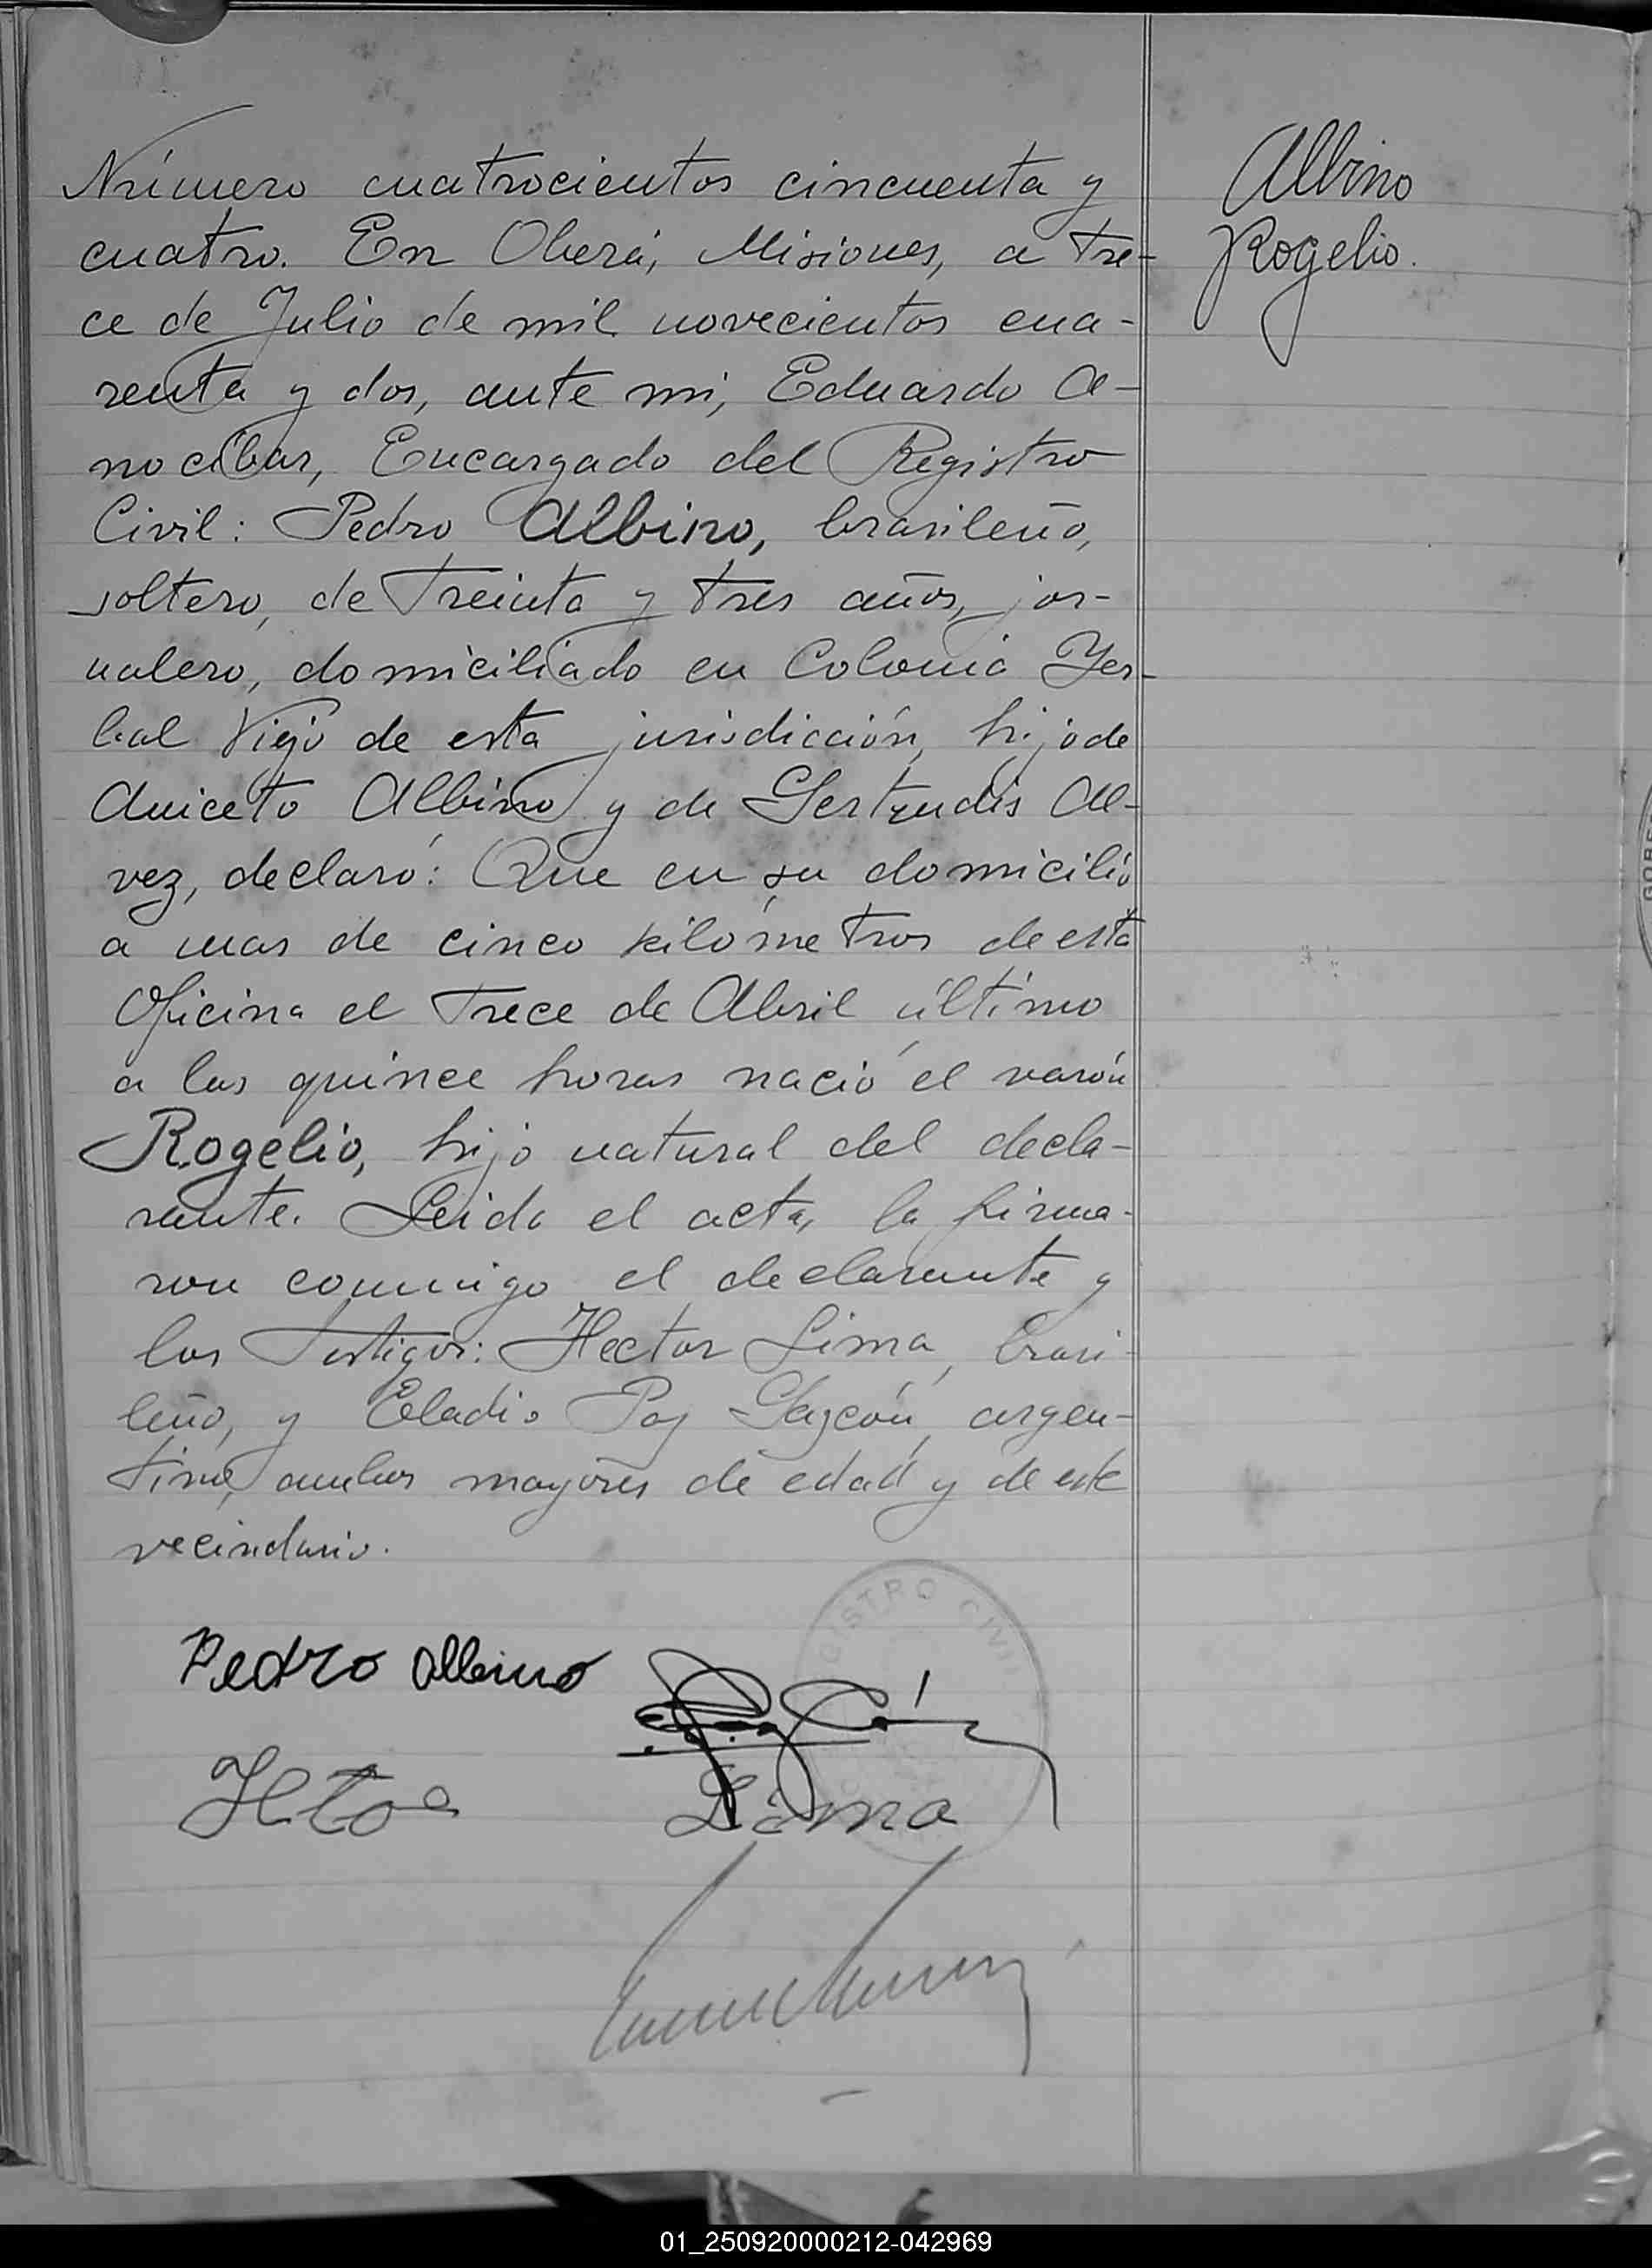 Número cuatrocientos cincuenta y
cuatro. En Oberá, Misiones, a tre-
ce de Julio de mil novecientos cua-
renta y dos, ante mi, Eduardo A-
nocibar, Encargado del Registro
Civil: Pedro Albino, brasileño,
soltero, de treinta y tres años, jor-
nalero, domiciliado en Colonia Yer-
bal Viejo de esta jurisdicción, hijo de
Aniceto Albino y de Gertrudis Al-
vez, declaró: Que en su domicilio
a mas de cinco kilómetros de esta
Oficina el trece de Abril último
a las quince horas nació el varón
Rogelio, hijo natural del decla-
rante. Leida el acta, la firma-
ron conmigo el declarante y
los testigos: Hector Lima, brasi-
leño, y Eladio Paz, argen-
tino, ambos mayores de edad y de este
vecindario.
Pedro Albino
Lima
REGISTRO CIVIL
Albino
Rogelio.
01_250920000212-042969